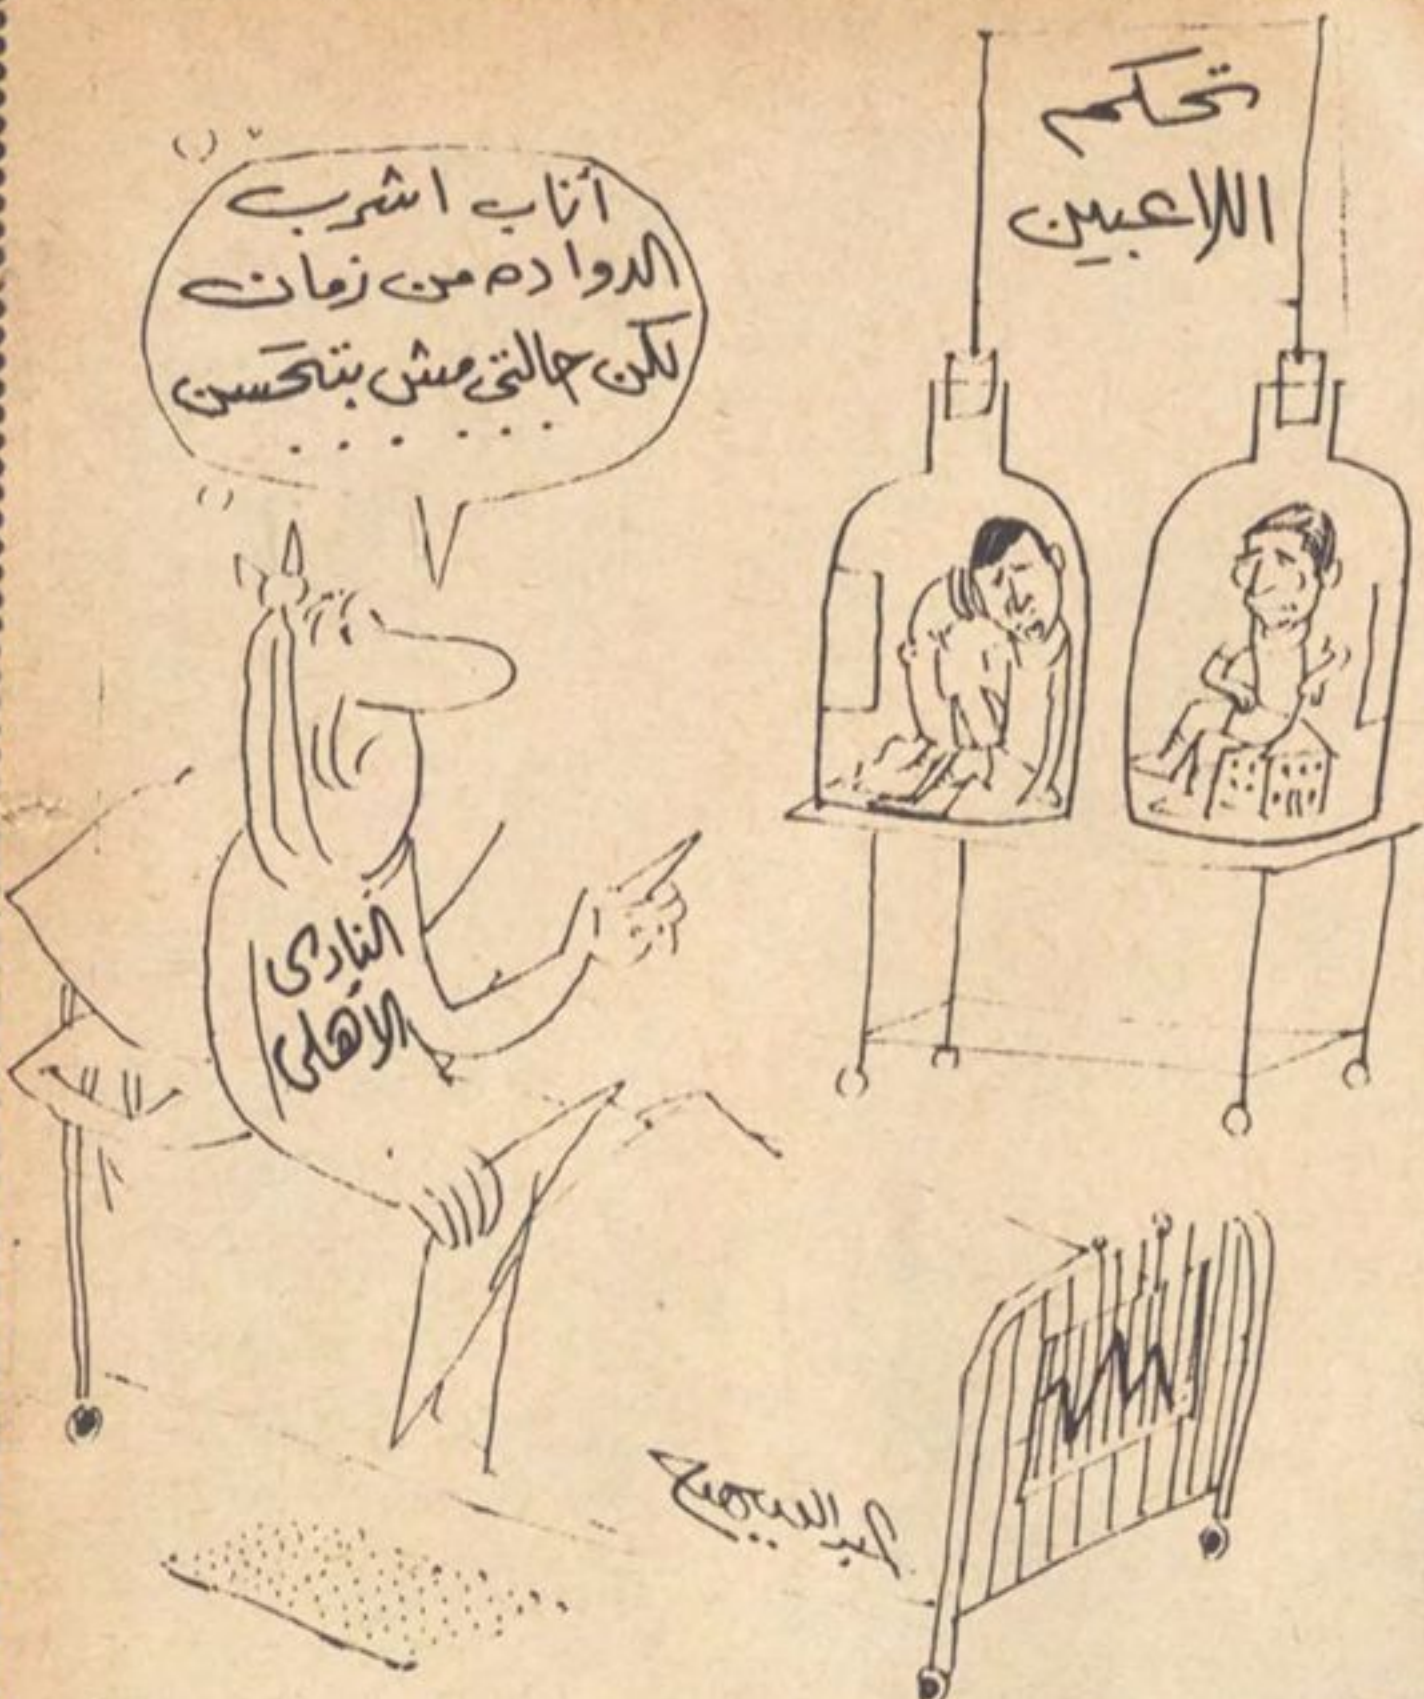 تحكم
اللاعبين
أناب اشرب
الدوا ده من زمان
لكن حالتي مش بتتحسن
......
النادى
الأهلى
عبد السميع